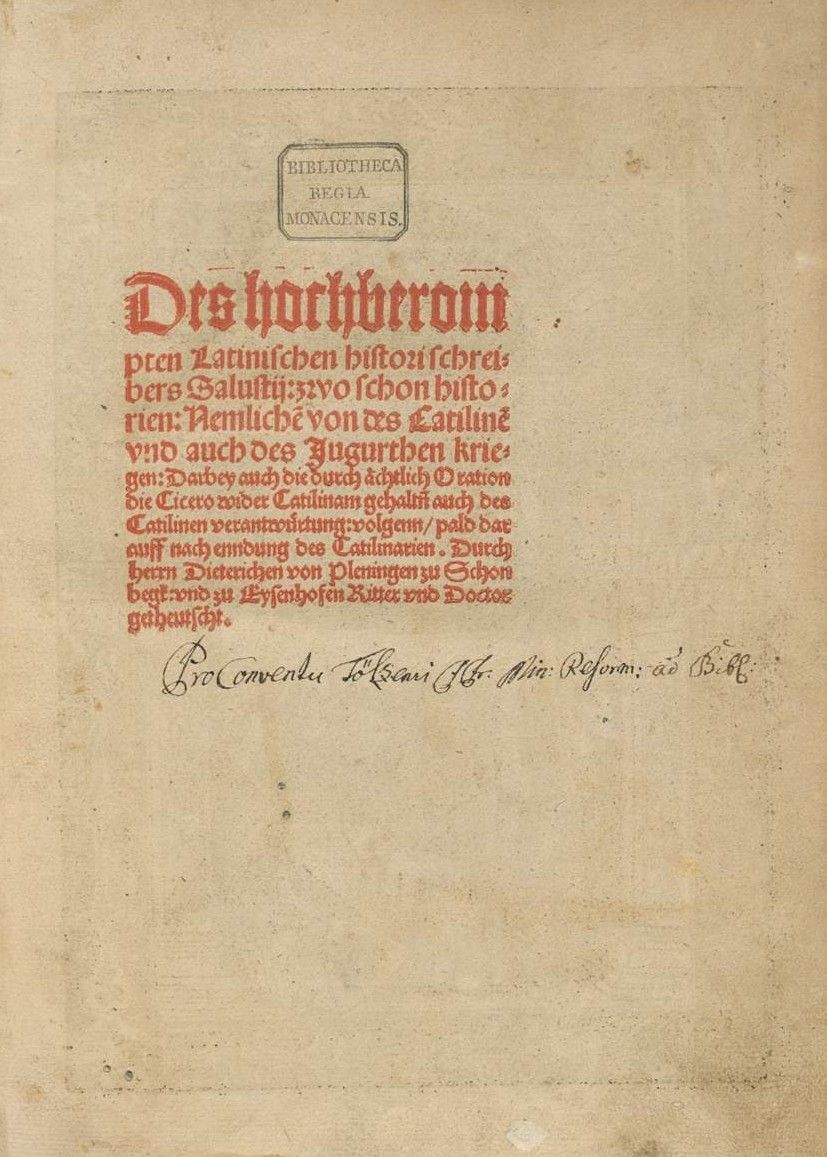 BIBLIOTHECA
REGIA
MONACENSIS.
Des hochberom
pten Latinischen histori schrei⸗
bers Salustij: zwo schon histo⸗
rien: Nemlichē von des Catilinē
vnd auch des Jugurthen krie⸗
gen: Darbey auch die durch åchtlich Oration
die Cicero wider Catilinam gehaltn̄ auch des
Catilinen verantwůrtung: volgenn/ pald dar
auff nach enndung des Catilinarien. Durch
herrn Dieterichen von Pleningen zu Schon
begk: vnd zu Eysenhofen Ritter vnd Doctor
getheutscht.
Pro Conventu Tölzensi Fr: Min: Reform: ad Bibl: